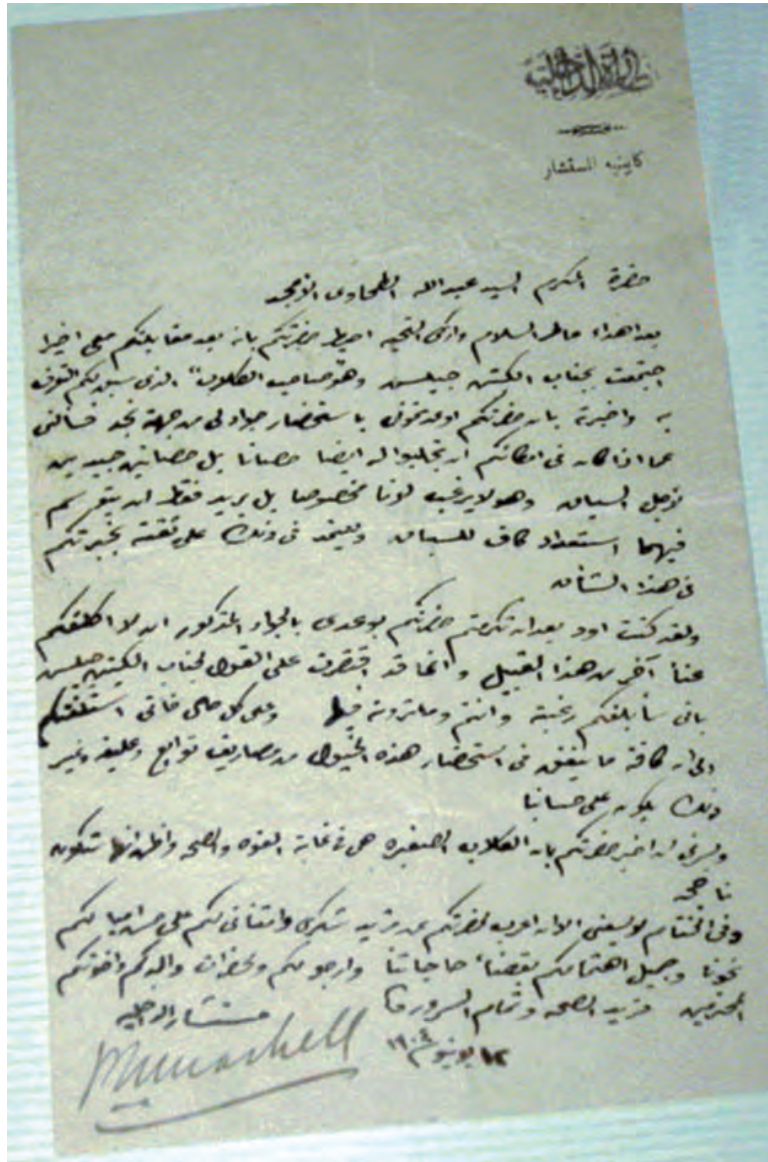 نظارة الداخلية
كابينه المستشار
حضرة المكرم السيد عبد الله الطحاوى الامجد
بعد اهداء عاطر السلام وازكى التحيه احيط حضرتكم بانه بعد مقابلتكم معى اخيرا
اجتمعت بجناب الكبتن جيلسن وهو صاحب الكلاب الذى سبق لكم التعرف
به واخبرته بان حضرتكم اوعدتمونى باستحضار جواد لى من جهة نجد فسألنى
عما اذا كان فى امكانكم ان تجلبوا له ايضا حصانا بل حصانين جيدين
لاجل السباق وهو لا يرغب لونا مخصوصا بل يريد فقط ان يتوسم
فيهما استعداد كاف للسباق ويعتمد فى ذلك على ثقته بخبرتكم
فى هذا الشأن
ولقد كنت اود بعد ان تكرمتم حضرتكم بوعدى بالجواد المذكور ان لا اكلفكم
عناء آخر من هذا القبيل وانما قد اقتصرت على القول لجناب الكبتن جيلسن
بانى سأبلغكم رغبته وانتم وما ترونه فيها وعلى كل حال فانى استلفتكم
الى ان كافة ما ينفق فى استحضار هذه الخيول من مصاريف توابع وعليقه وغير
ذلك يكون على حسابنا
ويسرنى ان اخبر حضرتكم بان الكلاب الصغيره هى فى غاية القوه والصحه واظن انها ستكون
ناجحه
وفى الختام لا يسعنى الا ان اعرب لحضرتكم عن مزيد شكرى وامتنانى لكم على حسن
نحونا وجميل اهتمامكم بقضاء حاجاتنا وارجو لكم ولحضرات والدكم واخوتكم
المحترمين مزيد الصحه وتمام السرور
مستشار الداخليه
١٢ يونيو ١٩٠٤